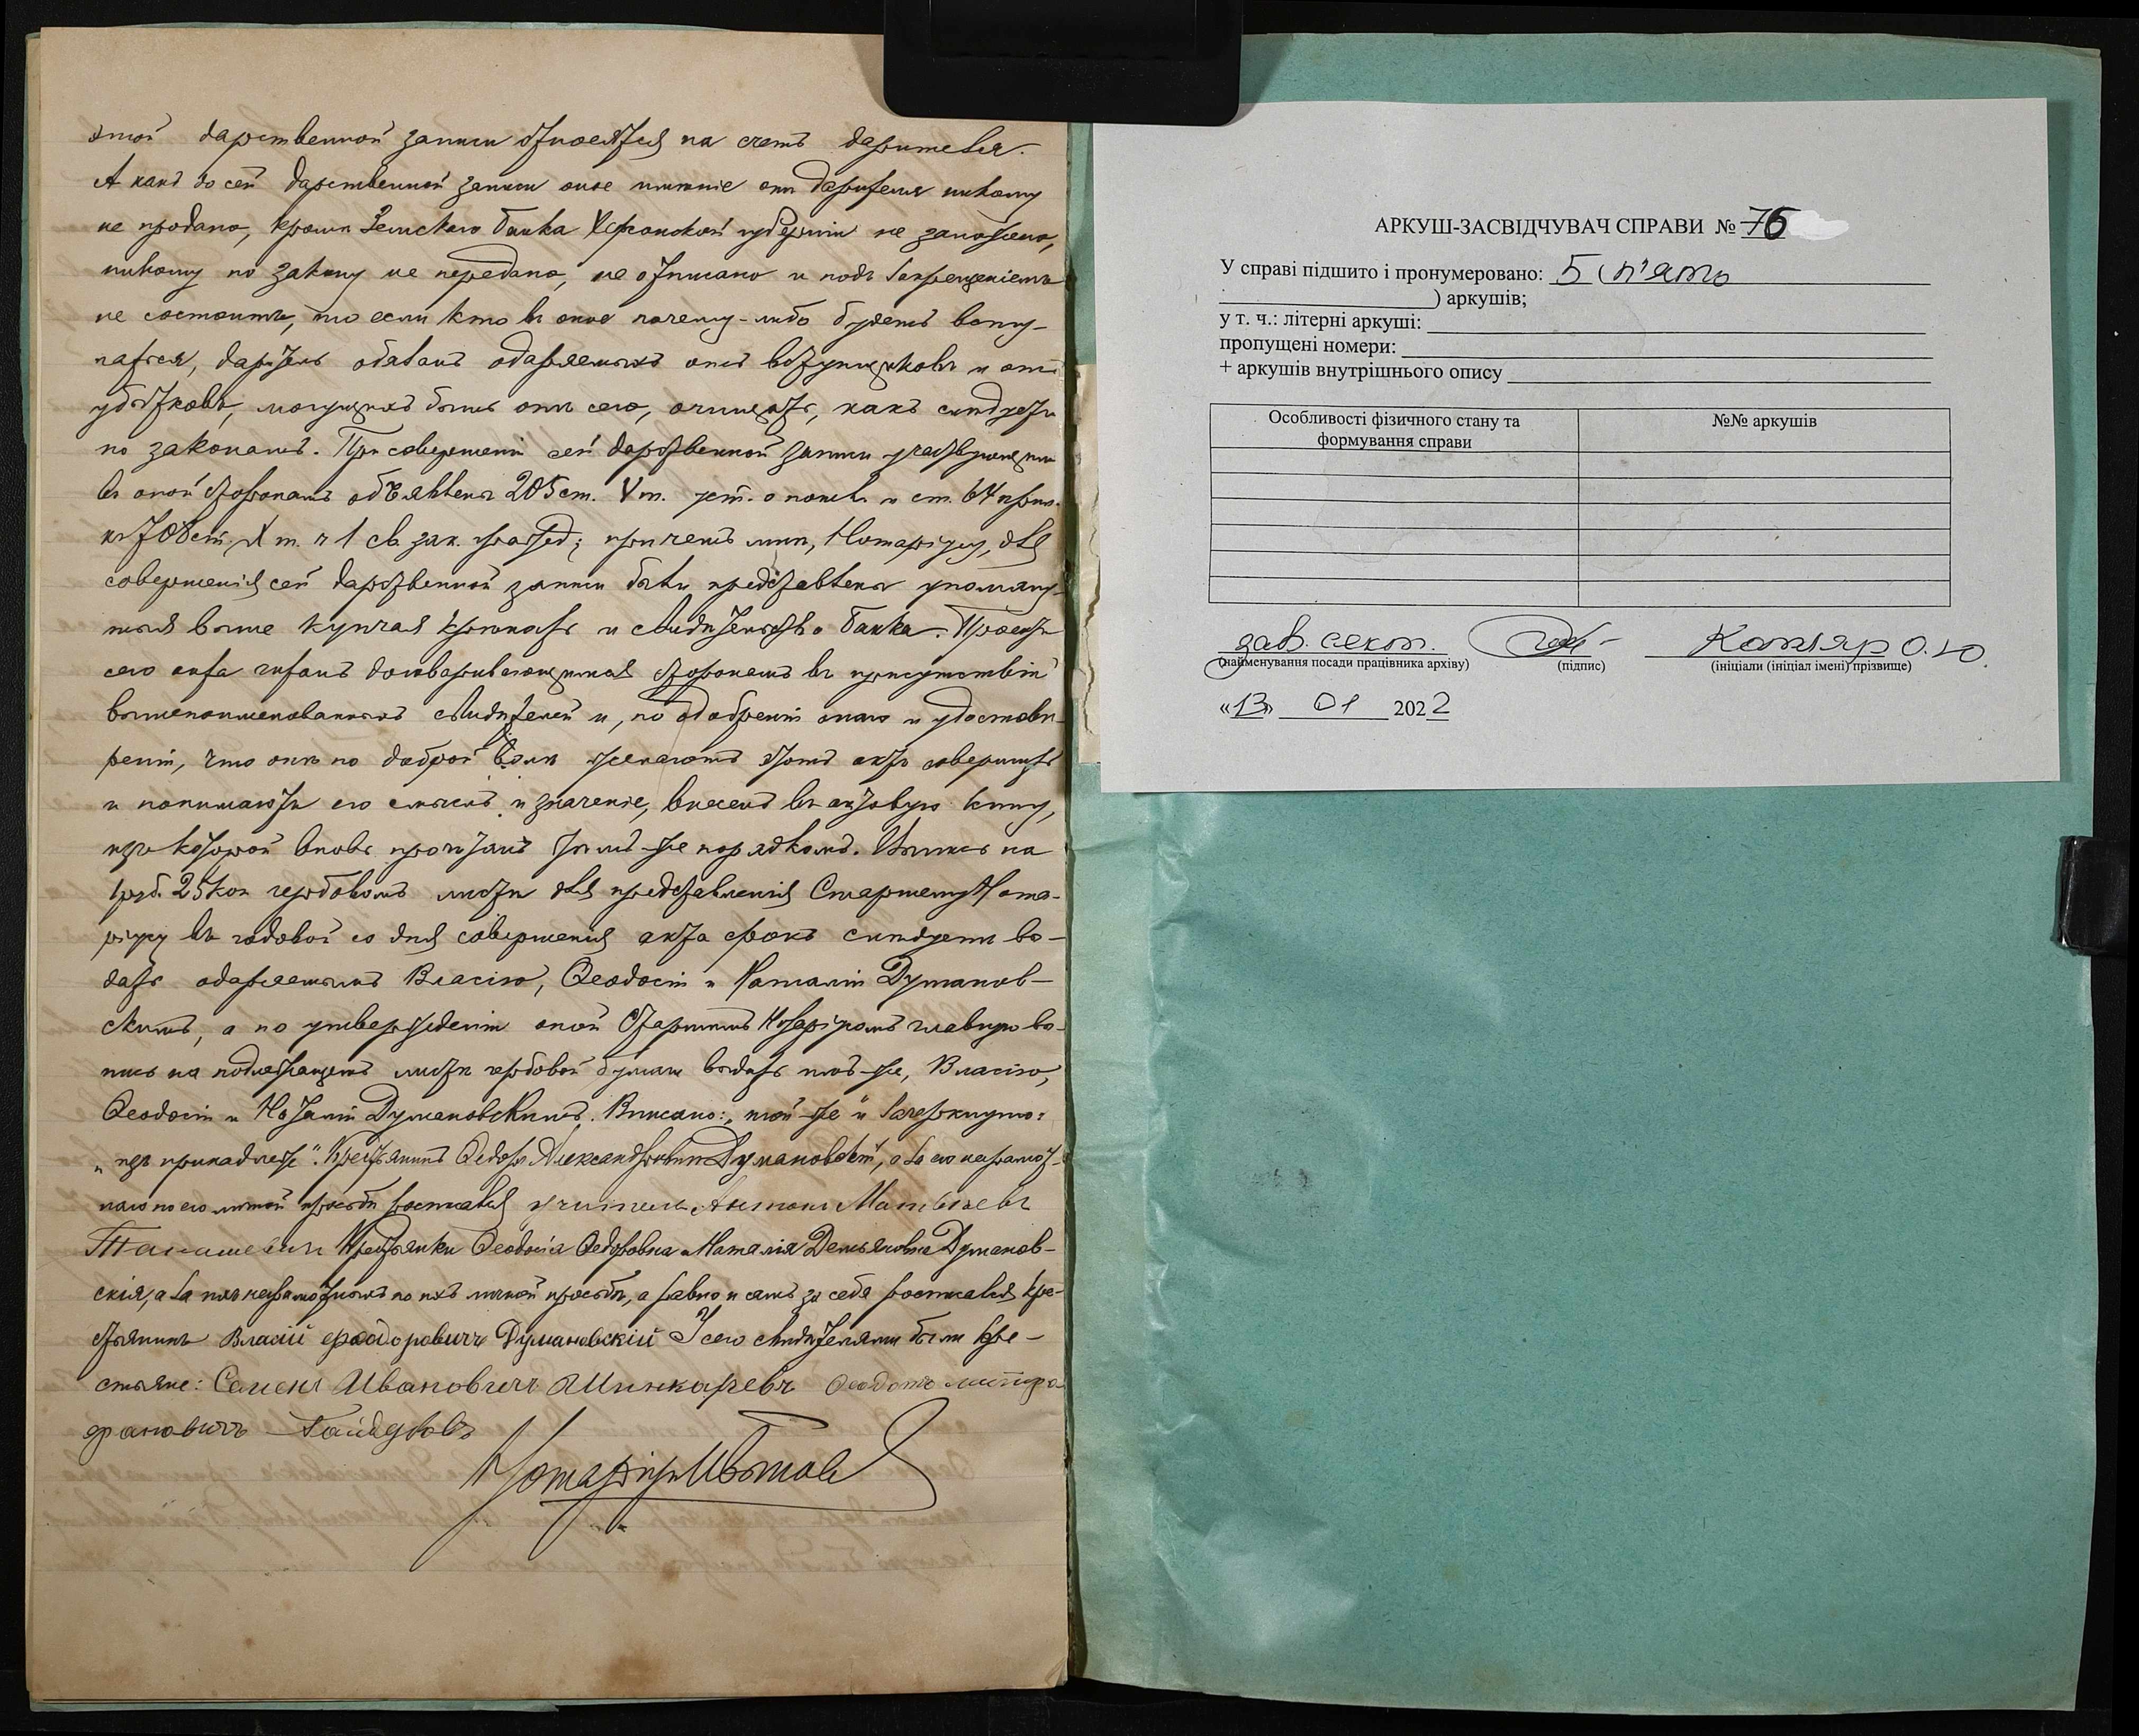 этой дарственной записи относятся на счетъ дарителя.
А какъ до сей дарственной записи оное имѣніе отъ дарителя никому
не продано, кромѣ Земскаго банка Херсонской губерніи не заложено,
никому по закону не передано, не отписано и подъ запрещеніемъ
не состоитъ, то если кто въ оное почему-либо будетъ всту-
паться, даритель обязанъ одаряемыхъ отъ вступщиковъ и отъ
убытковъ, могущихъ быть отъ сего, очищать, какъ слѣдуетъ
по законамъ. При совершеніи сей дарственной записи участвующимъ
въ оной сторонамъ объявлены 205 ст. V т. уст. о пошл. и ст. 64 прил.
къ 708 ст. X т. ч 1 св. зак. гражд; причемъ мнѣ, Нотаріусу, для
совершенія сей дарственной записи были представлены упомяну-
тыя выше купчая крѣпость и свидѣтельство банка. Проектъ
сего акта читанъ договаривающимся сторонамъ въ присутствіи
вышепоименованныхъ свидѣтелей и, по одобреніи онаго и удостовѣ-
реніи, что они по доброй волѣ желаютъ этотъ актъ совершить
и понимаютъ его смыслъ и значеніе, внесенъ въ актовую книгу,
изъ которой вновь прочитанъ тѣмъ-же порядкомъ. Выпись на
1 руб. 25 коп гербовомъ листѣ для представленія Старшему Нота-
ріусу въ годовой со дня совершенія акта срокъ слѣдуетъ вы-
дать одаряемымъ Власію, Ѳеодосіи и Наталіи Думанов-
скимъ, а по утвержденіи оной Старшимъ Нотаріусомъ главную вы-
пись на подлежащемъ листѣ гербовой бумаги выдать имъ-же, Власію,
Ѳеодосіи и Наталіи Думановскимъ. Вписано: „той-же" и зачеркнуто:
„изъ принадлеж". Крестьянинъ Ѳедоръ Александровичъ Думановскій, а за его неграмот-
наго по его личной просьбѣ росписался учитель Антонъ Матвѣевъ
Танашевичъ Крестьянки Ѳеодосія Ѳедоровна и Наталія Демьяновна Думанов-
скія, а за нихъ неграмотныхъ по ихъ личной просьбѣ, а равно и самъ за себя росписался кре-
стьянинъ Власій Ѳеодоровичъ Думановскій У сего свидѣтелями были кре-
стьяне: Семенъ Ивановичъ Шинкаревъ Ѳеодотъ митро
фановичъ Гайдуковъ
Нотаріусъ
АРКУШ-ЗАСВІДЧУВАЧ СПРАВИ № 76
У справі підшито і пронумеровано: 5 (п'ять
) аркушів;
у т. ч.: літерні аркуші:
пропущені номери:
+ аркушів внутрішнього опису
Особливості фізичного стану та формування справи №№ аркушів
зав. сект. Котляр О.Ю.
(найменування посади працівника архіву) (підпис) (ініціали (ініціал імені) прізвище)
«13» 01 2022